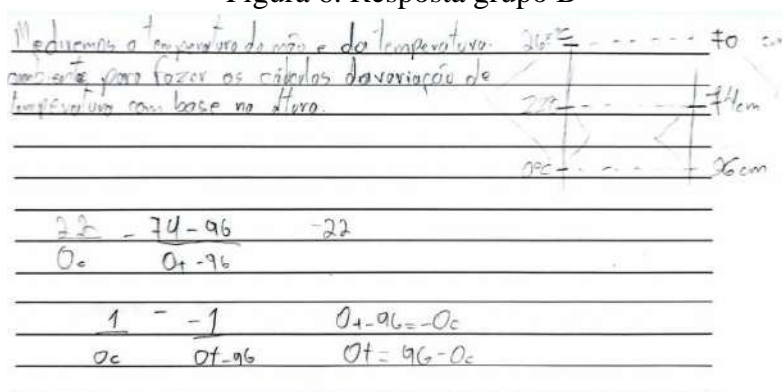 Figura 6. Resposta grupo B
Meduemos a temperatura da mão e da temperatura
ambiente para fazer os cálculos da variação de
temperatura com base na altura.
36°C 70
22°C 74cm
0°C 96cm
22 - 74-96 -22
0c 0t-96
1 - -1 0t-96=-0c
0c 0t-96 0t=96-0c